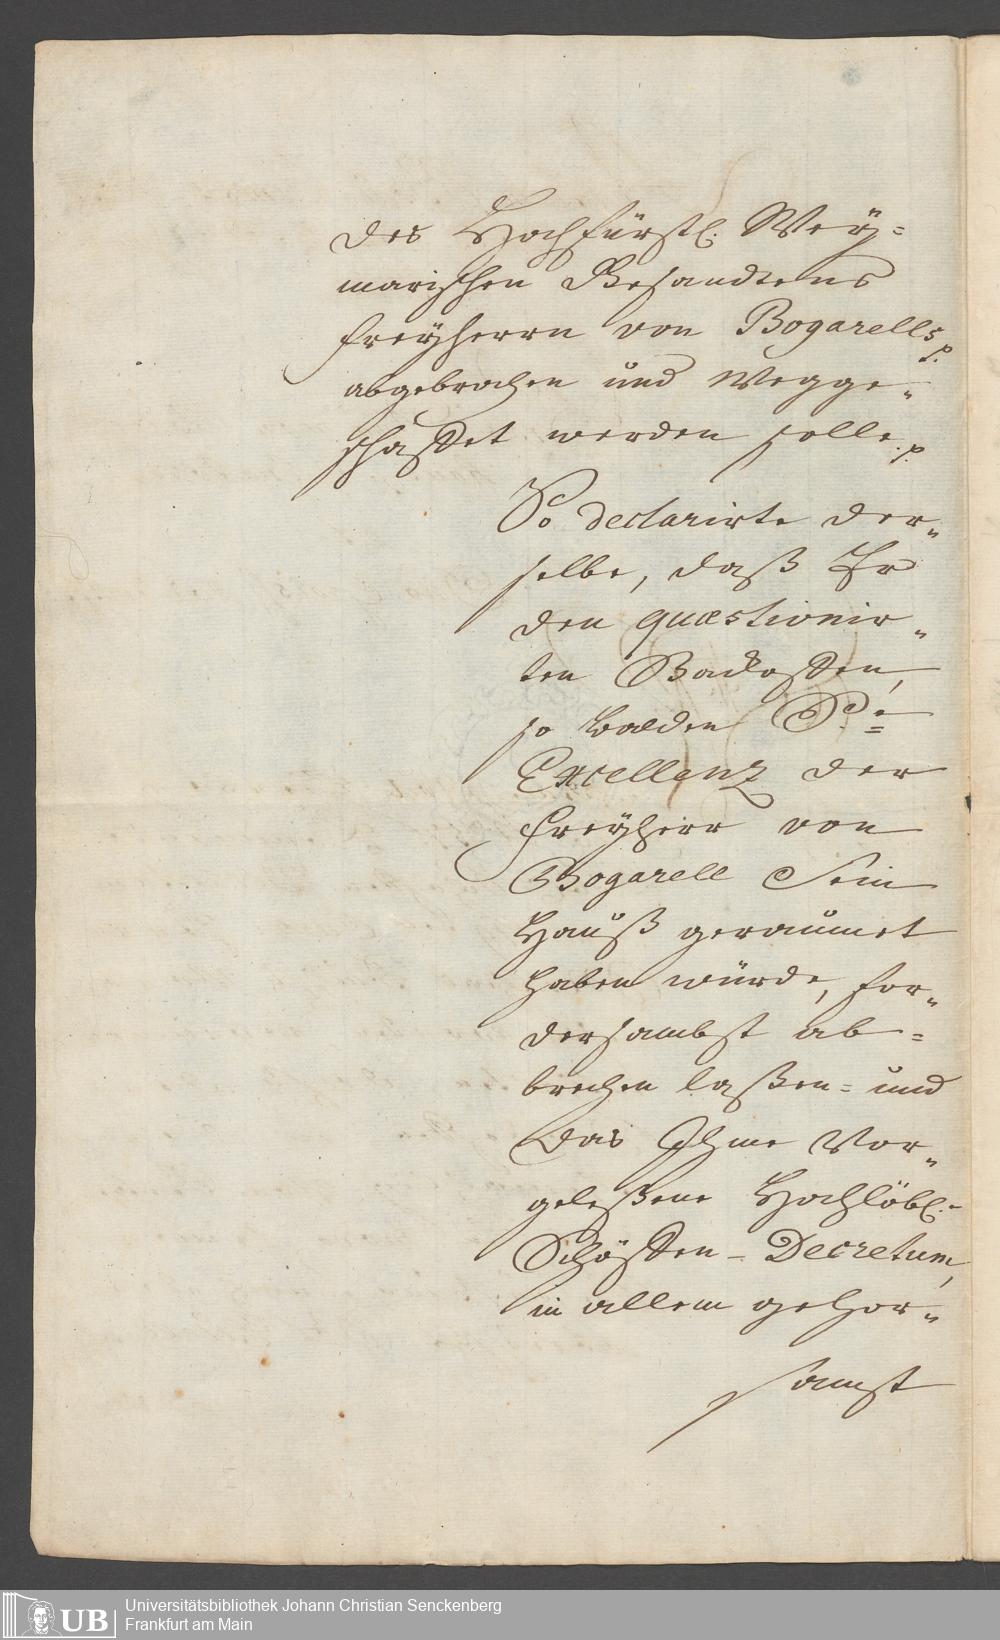 des Hochfürstl: Wey=
marischen Gesandtens
Freyherrn von Bogarells p.
abgebrochen und wegge„
schaffet werden solle. p.
So declarirte der„
selbe, daß Er
den quæstionir„
ten Backoffen,
so balden Se:
Excellenz der
Freyherr von
Bogarell Sein
Hauß geraumet
haben würde, for„
dersambst ab=
brechen laßen= und
das Ihme vor„
geleßene Hochlöbl:
Schöffen-Decretum,
in allem gehor„
samst
UB
Universitätsbibliothek Johann Christian Senckenberg
Frankfurt am Main